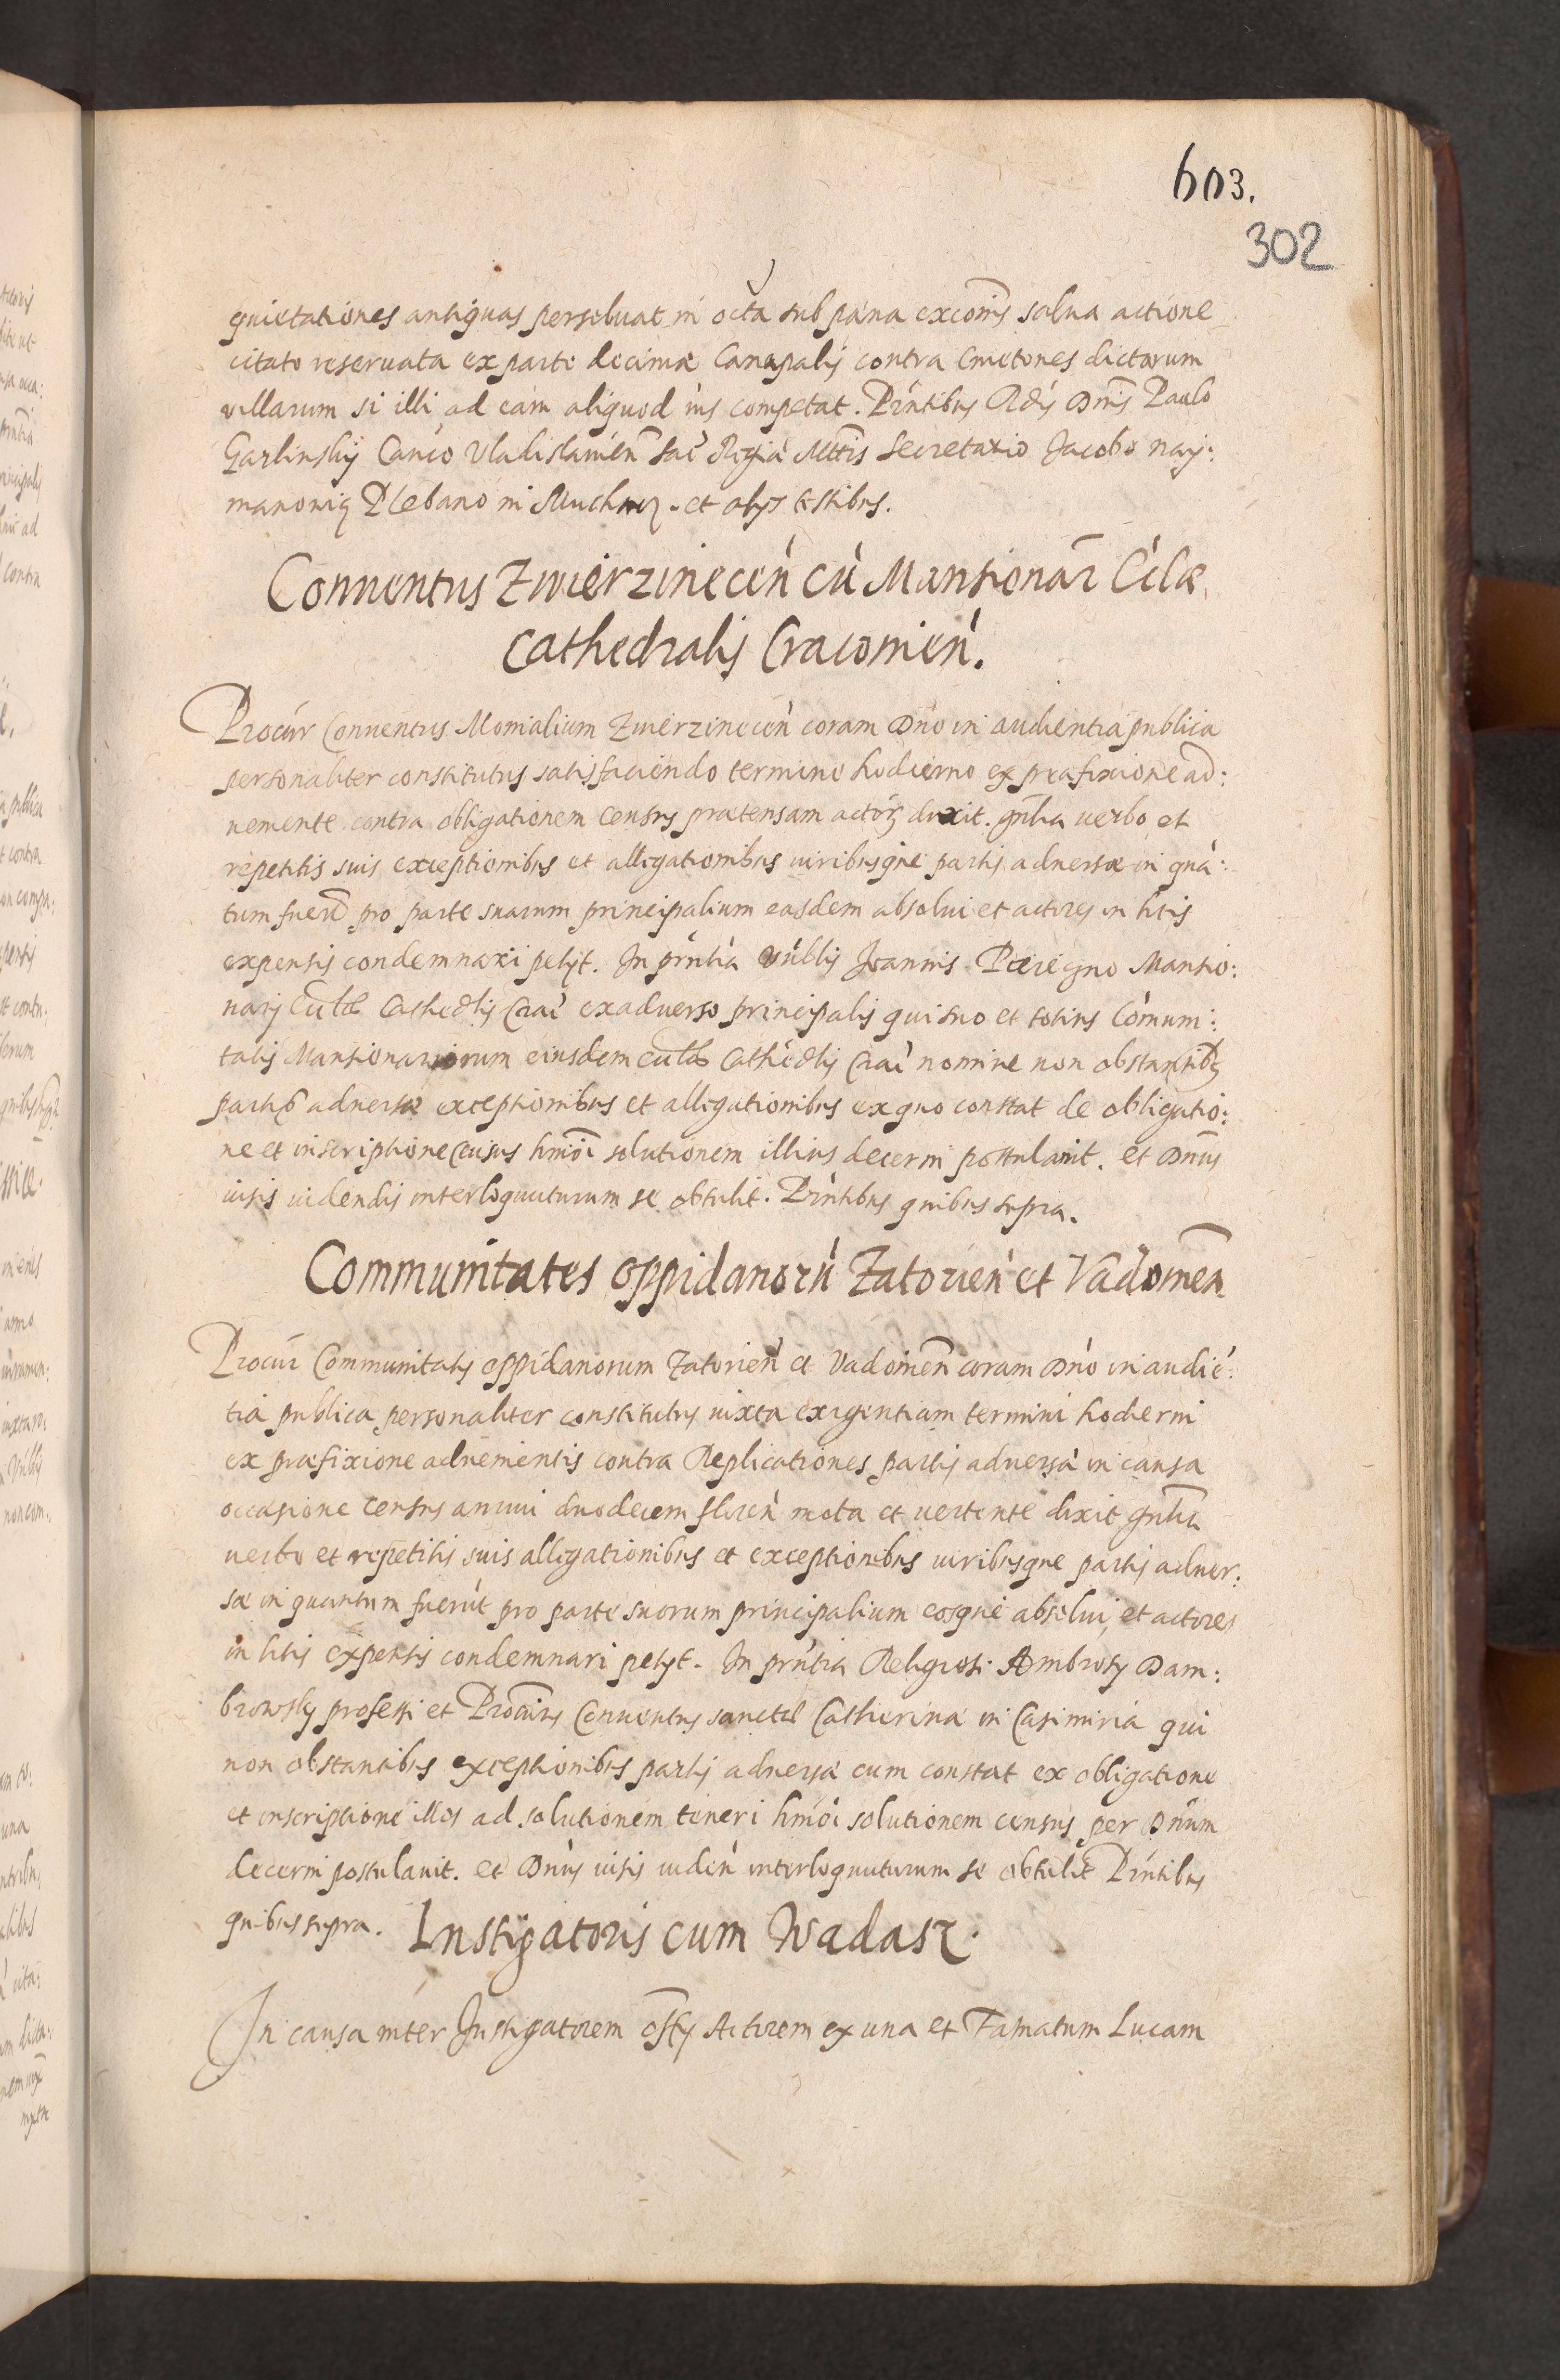 603.
302
quietationes antiquas persoluat in octa sub pæna excomis salua actione
citato reseruata ex parte decimæ Canapalis contra Cmetones dictarum
villarum si illi ad eam aliquod ius competat. Pntibus Rdis Dnis Paulo
Garlinskij Canco Vladislauien Sac Regiæ Mttis Secretario Jacobo
Plebano in et alys testibus.
Conuentus Zwierzinecen cu Mansionar Ecclæ
Cathedralis Cracouien.
Procur Conuentus Monialium Zwierzinecen coram Dno in audientia publica
personaliter constitutus satisfaciendo termino hodierno ex præfixione ad:
ueniente contra obligationem Census prætensam actorz dixit gnlia uerbo et
repetitis suis exceptionibus et allegationibus iuribusque partis aduersæ in quā:
tum fuerūt pro parte suarum principalium easdem absolui et actores in litis
expensis condemnari petyt. In pntia Vnblis Joannis Peregno Mansio:
narij Ecclæ Cathedlis Crac exaduerso principalis qui suo et totius Comuni:
tatis Mansionariorum eiusdem ecclæ Cathedlis Crac nomine non obstantibz
partis aduersæ exceptionibus et allegationibus ex quo constat de obligatio:
ne et inscriptione Census hmoi solutionem illius decerni postulauit. et Dnus
uisis uidendis interloquuturum se obtulit. Pntibus quibus supra.
Communitates oppidanoru Zatorien et Vadomen
Procur Communitatis oppidanorum Zatorien et Vadomen coram Dno in audie:
tia publica personaliter constitutus iuxta exigentiam termini hodierni
ex præfixione aduenientis contra Replicationes partis aduersæ in causa
occasione census annui duodecem floren mota et uertente dixit gnlia
uerbo et repetitis suis allegationibus et exceptionibus iuribusque partis aduer:
sæ in quantum fuerūt pro parte suorum principalium eosque absolui, et actores
in litis expensis condemnari petyt. In pntia Religiosi Ambrosy Dam:
browsky professi et Procuris Conuentus sanctæ Catherinæ in Casimiria qui
non obstantibus exceptionibus partis aduersæ cum constat ex obligatione
et inscriptione illos ad solutionem teneri hmoi solutionem census per Dnum
decerni postulauit. et Dnus uisis uiden interloquuturum se obtulit Pntibus
quibus supra. Instigatoris cum Wadasz.
In causa inter Instigatorem offy Actorem ex una et Famatum Lucam